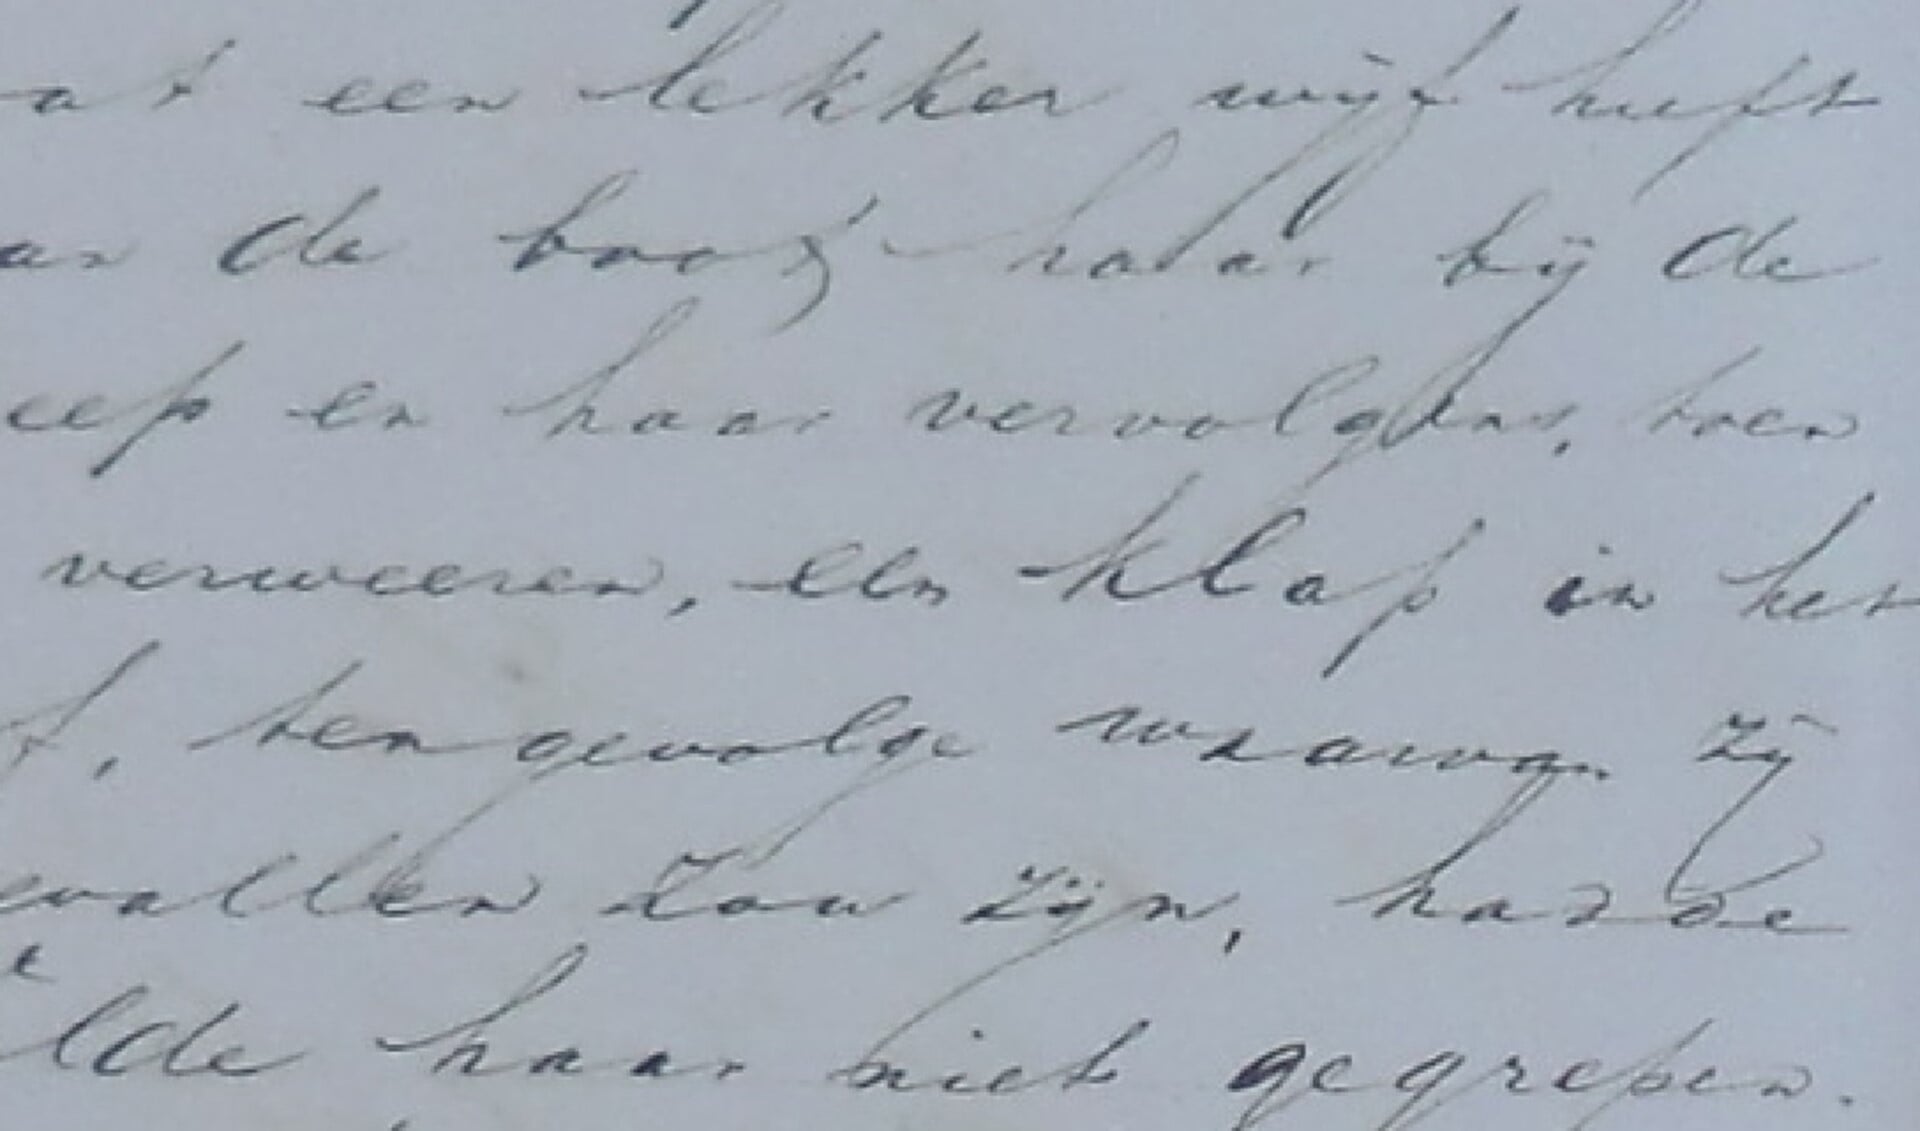 at een lekker wijf heeft
an de boot, haar bij de
eep en haar vervolgens, toen
verweeren, een klap in het
f, tengevolge waarvan zij
evallen zou zijn, hadde
lde haar niet gegrepen.